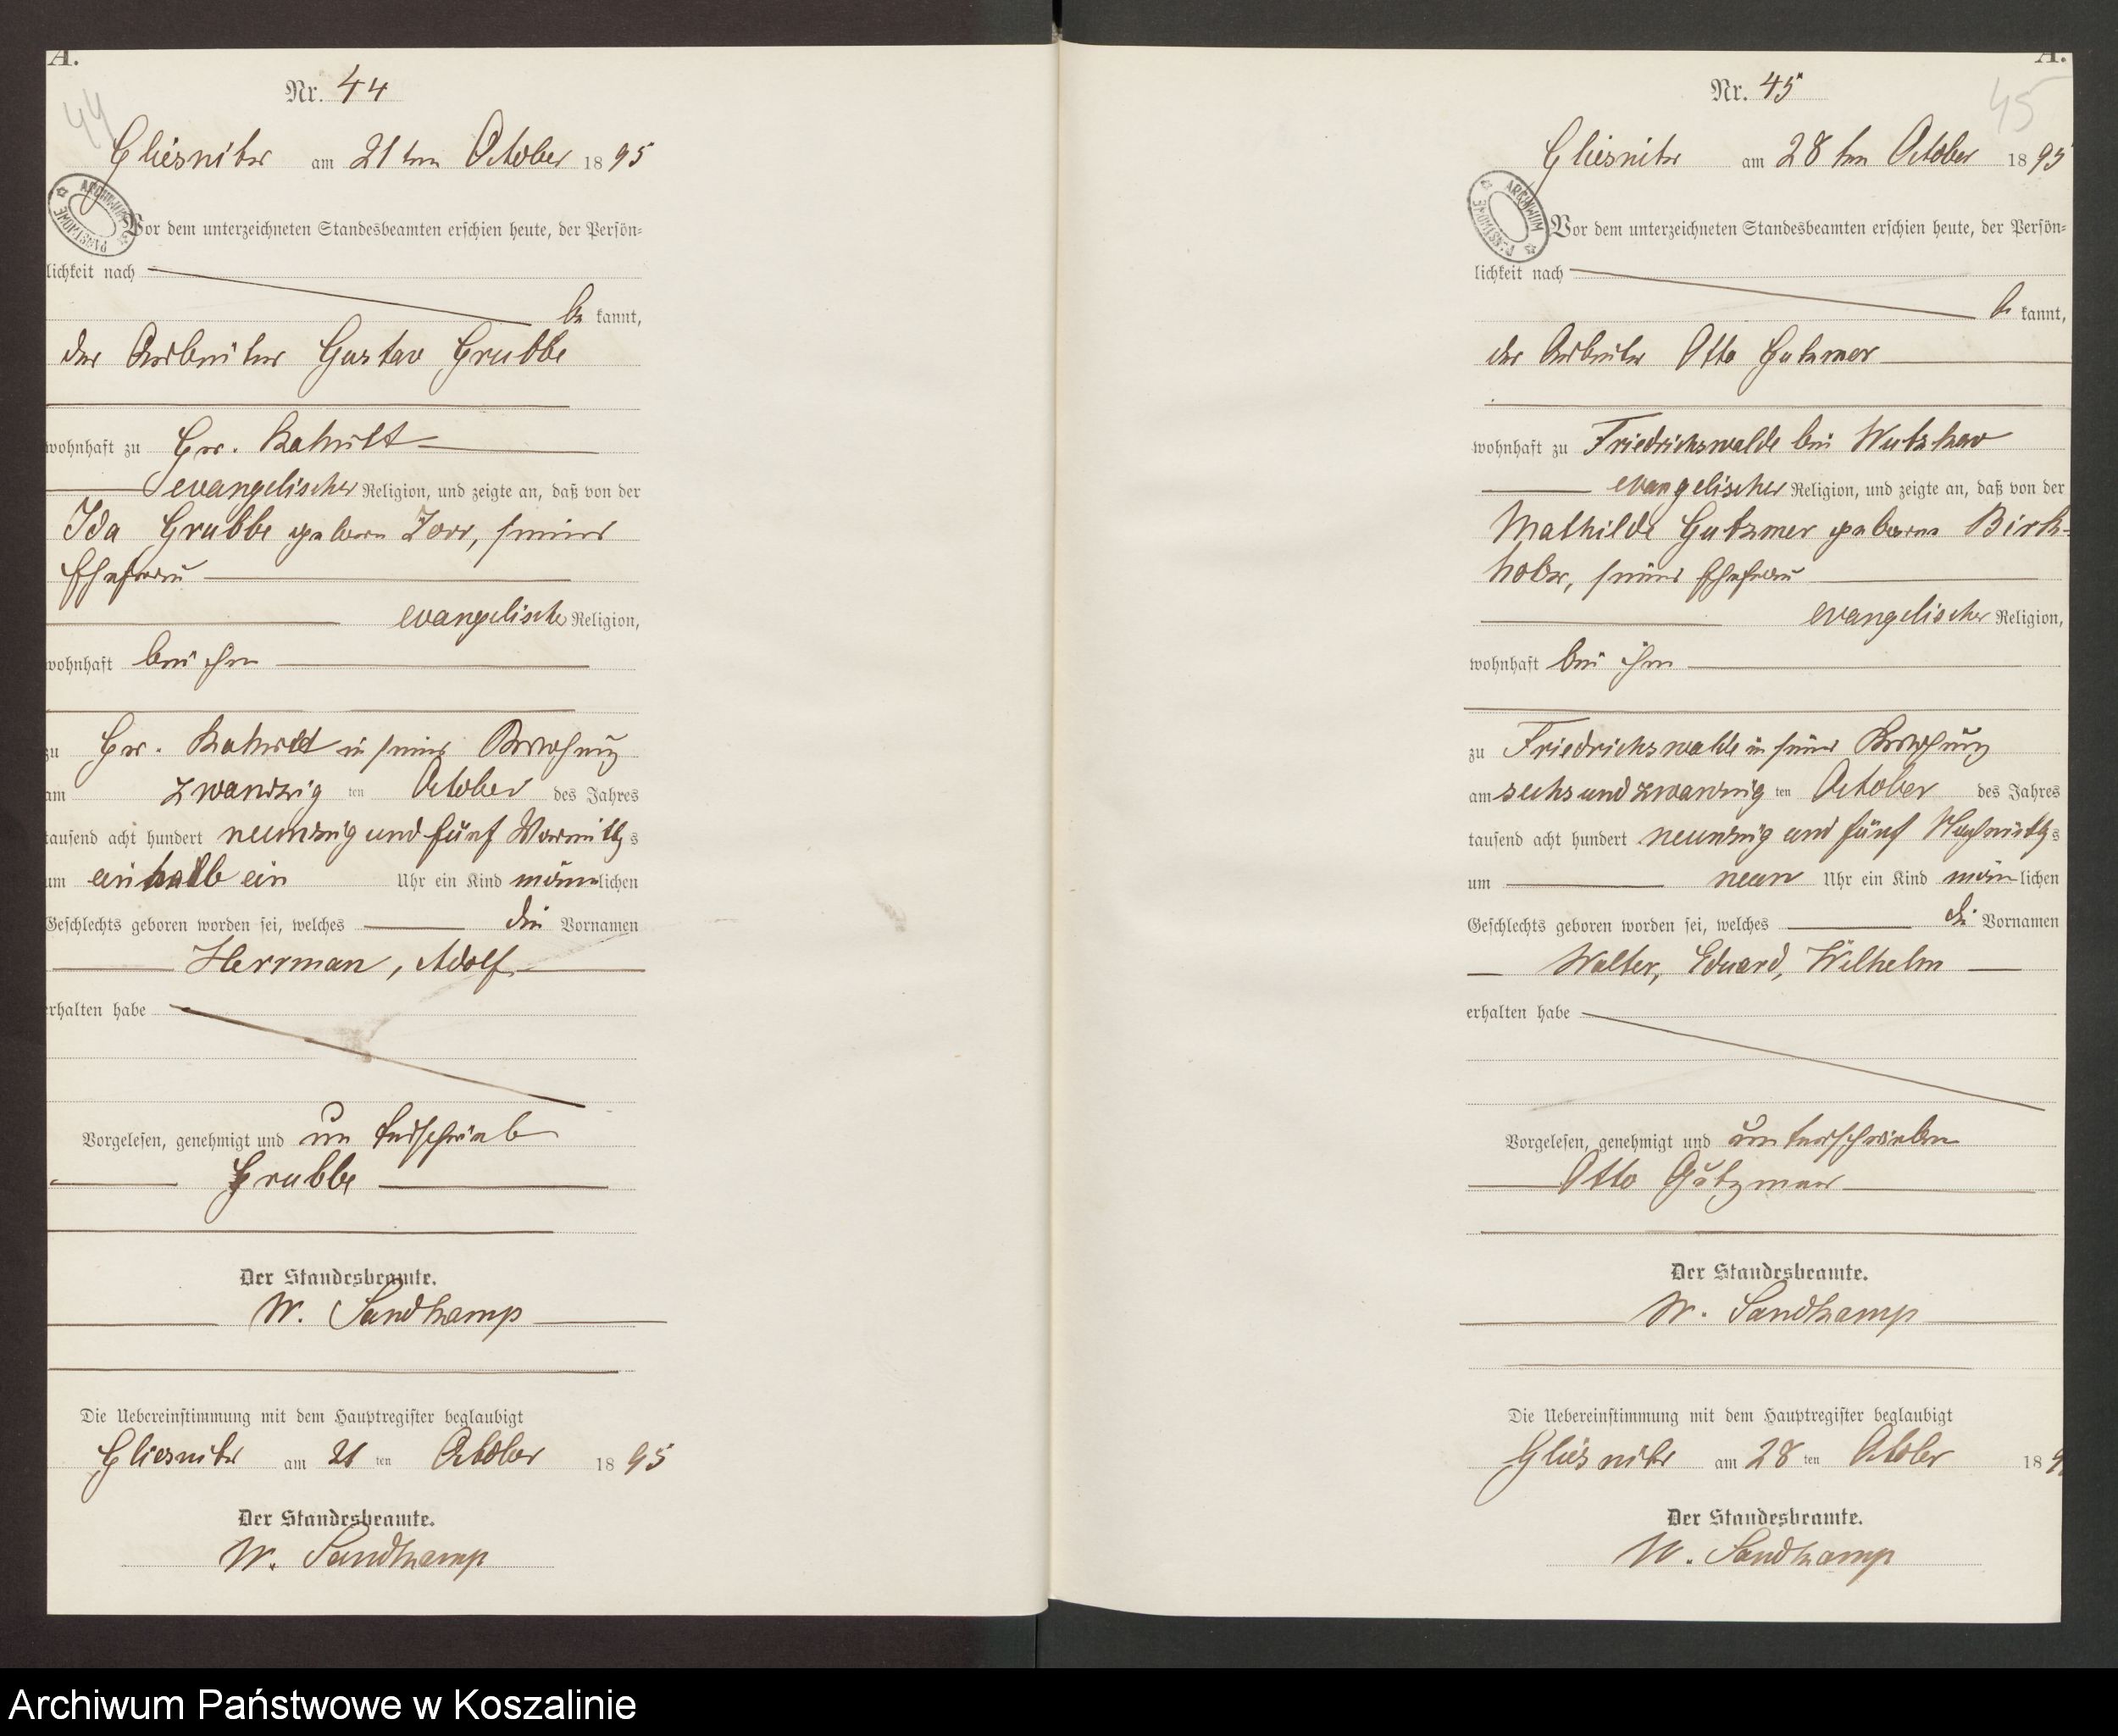 A.
Nr. 44
44
Gliesnitz am 21ten October 1895
ARCHIWUM PAŃSTWOWE
Vor dem unterzeichneten Standesbeamten erschien heute, der Persön-
lichkeit nach
be kannt,
der Arbeiter Gustav Grubbe
wohnhaft zu Gr.
evangelischer Religion, und zeigte an, daß von der
Ida Grubbe geboren seiner
Ehefrau
evangelischer Religion,
wohnhaft bei ihm
zu Gr. in seiner Wohnung
am zwanzig ten October des Jahres
tausend acht hundert neunzig und fünf Vormittags
um einhalb ein Uhr ein Kind männlichen
Geschlechts geboren worden sei, welches die Vornamen
Herrman, Adolf
erhalten habe
Vorgelesen, genehmigt und unterschrieben
Grubbe
Der Standesbeamte.
W. Sandkamp
Die Uebereinstimmung mit dem Hauptregister beglaubigt
Gliesnitz am 21 ten October 1895
Der Standesbeamte.
W. Sandkamp
A.
Nr. 45
45
Gliesnitz am 28ten October 1895
ARCHIWUM PAŃSTWOWE
Vor dem unterzeichneten Standesbeamten erschien heute, der Persön-
lichkeit nach
be kannt,
der Arbeiter Otto Gutzmer
wohnhaft zu Friedrichswalde bei Wutzkow
evangelischer Religion, und zeigte an, daß von der
Mathilde Gutzmer geborene Birk-
holz, seiner Ehefrau
evangelischer Religion,
wohnhaft bei ihm
zu Friedrichswalde in seiner Wohnung
am sechsundzwanzig ten October des Jahres
tausend acht hundert neunzig und fünf Nachmittags
um neun Uhr ein Kind männlichen
Geschlechts geboren worden sei, welches die Vornamen
Walter, Eduard, Wilhelm
erhalten habe
Vorgelesen, genehmigt und unterschrieben
Otto Gützmer
Der Standesbeamte.
W. Sandkamp
Die Uebereinstimmung mit dem Hauptregister beglaubigt
Gliesnitz am 28 ten October 189
Der Standesbeamte.
W. Sandkamp
Archiwum Państwowe w Koszalinie